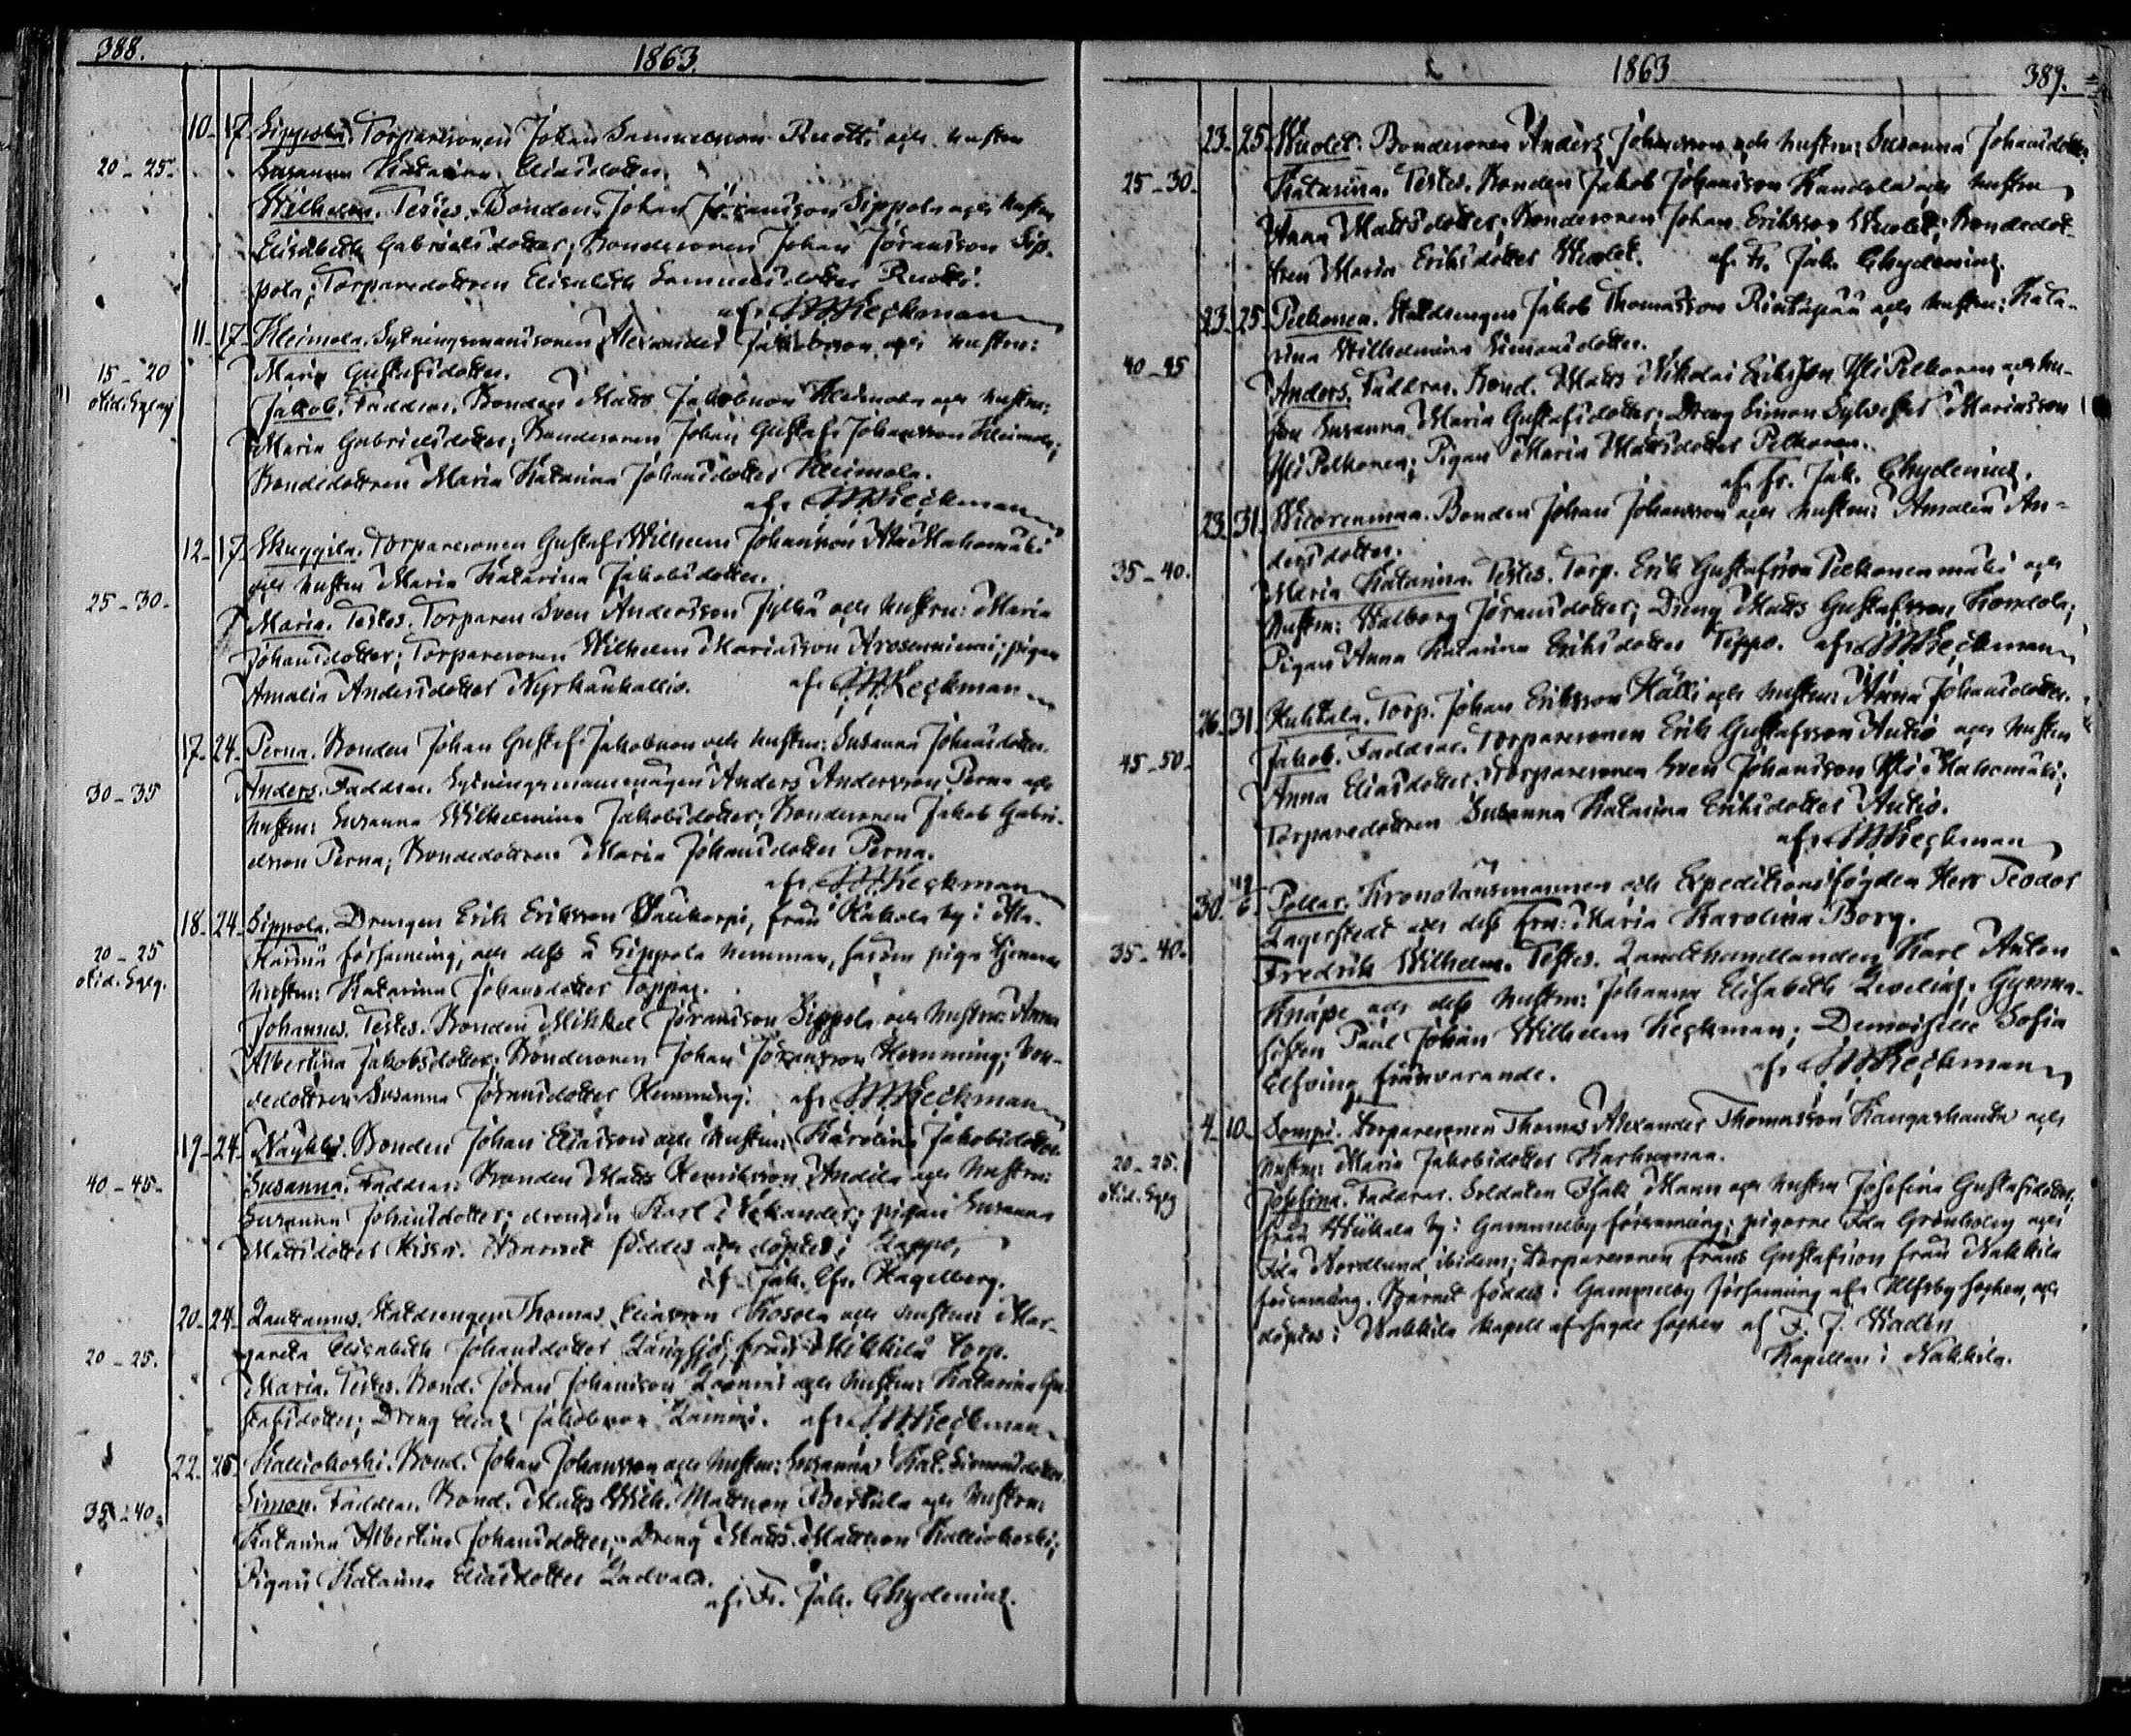 388.
1863.
10. 17. Sippola. Torparesonen Johan Samuelsson Ruotti och hustrun
20 - 25. Susanna Katarina Eliasdotter.
Wilhelm. Testes. Bonden Johan Jöransson Sippola och hustrun
Elisabeth Gabrielsdotter; Bondesonen Johan Jöransson Sip-
pola; Torparedottren Elisabeth Samuelsdotter Ruotti.
af. Keckman
11. 17. Kleimola. Sytningsmanssonen Alexander Jakobsson och hustrun:
15 - 20 Maria Gustafsdotter.
Jakob. Faddrar. Bonden Matts Jakobsson Kleimola och hustrun:
Maria Gabrielsdotter; Bondesonen Johan Gustaf Johansson Kleimola;
Bondedottren Maria Katarina Johansdotter Kleimola.
af. Keckman
12. 17. Skuggila. Torparesonen Gustaf Wilhelm Johansson Ala Hakomäki
och hustrun Maria Katarina Jakobsdotter.
25 - 30. Maria. Testes. Torparen Sven Andersson Jylhä och hustrun: Maria
Johansdotter; Torparesonen Wilhelm Mariasson Arosenniemi; pigan
Amalia Andersdotter Nyrhänkallio. af. Keckman
17. 24. Perna. Bonden Johan Gustaf Jakobsson och hustrun: Susanna Johansdotter.
30 - 35 Anders. Faddrar. Sytningsmansmågen Anders Andersson Perna och
hustrun: Susanna Wilhelmina Jakobsdotter; Bondesonen Jakob Gabri-
elsson Perna; Bondedottren Maria Johansdotter Perna.
af. Keckman
18. 24. Sippola. Drengen Erik Eriksson Salikorpi, från Kakola by i
20 - 25 församling, och dess å Sippola hemman, såsom piga tjenande
hustrun: Katarina Johansdotter Toppar.
Johannes. Testes. Bonden Mikkel Jöransson Sippola och hustrun: Anna
Albertina Jakobsdotter; Bondesonen Johan Jöransson Hemming; bon-
dedottren Susanna Jöransdotter Hemming. af. Keckman
19. 24. Näykki. Bonden Johan Eliasson och hustrun: Karolina Jakobsdotter
40 - 45. Susanna. Faddrar. Bonden Matts Henriksson Andila och hustrun:
Susanna Johansdotter; drengen Karl Nikander; pigan Susanna
Mattsdotter Kissa. Barnet föddes och döptes i Lappo,
af Joh. Efr. Hagelberg.
20. 24. Lautamus. Statdrengen Thomas Eliasson Kosola och hustrun Mar-
gareta Elisabeth Johansdotter Långsjö, från Mikkilä torp.
20 - 25. Maria. Testes. Bond. Jöran Johansson Laonni och hustrun: Katarina Gu-
stafsdotter; Dreng Elias Jakobsson Lammi. af. Keckman
22. 25. Kalliokoski. Bond. Johan Johansson och hustrun: Susanna Kat. Simonsdotter.
35 - 40. Simon. Faddrar. Bond. Matts Wilh. Mattsson Perkula och hustrun:
Katarina Albertina Johansdotter; Dreng Matts Mattsson Kalliokoski;
Pigan Katarina Eliasdotter Ladvala.
af. Fr. Joh. Chydenius.
1863
389.
23. 25. Wuolet. Bondesonen Anders Johansson och hustrun: Susanna Johansdotter.
25 - 30. Katarina. Testes. Bonden Jakob Johansson Kandola och hustrun
Anna Mattsdotter; Bondesonen Johan Eriksson Wuolet; Bondedot-
tren Maria Eriksdotter Wuolet. af. Fr. Joh. Chydenius.
23. 25. Pelkonen. Statdrengen Jakob Thomasson Rintapää och hustrun: Kata-
rina Wilhelmina Simonsdotter.
40 - 45 Anders. Faddrar. Bond. Matts Nikolai Eriksson Yli Pelkonen och hu-
stru Susanna Maria Gustafsdotter; Dreng Simon Sylvester Mariasson
Yli Pelkonen; Pigan Maria Mattsdotter Pelkonen.
af. Fr. Joh. Chydenius.
23. 31. Wuorenmaa. Bonden Johan Johansson och hustrun: Amalia An-
dersdotter.
35 - 40. Maria Katarina. Testes. Torp. Erik Gustafsson Pelkonenmäki och
hustrun: Walborg Jöransdotter; Dreng Matts Gustafsson Kondola;
Pigan Anna Katarina Eriksdotter Teppo. af. Keckman
26. 31. Kuhtala. Torp. Johan Eriksson Källi och hustrun: Anna Johansdotter.
45 - 50. Jakob. Faddrar. Torparesonen Erik Gustafsson Autio och hustrun
Anna Eliasdotter; Torparesonen Sven Johansson Yli Hakomäki;
Torparedottren Susanna Katarina Eriksdotter Autio.
af. Keckman
30. 6. Pollar. Kronolänsmannen och Expeditionsfogden Herr Teodor
Lagerstedt och dess Fru: Maria Karolina Borg.
35 - 40. Fredrik Wilhelm. Testes. Landthandlanden Karl Anton
Knape och dess hustru: Johanna Elisabeth Zevelius; Gymna-
sisten Paul Johan Wilhelm Keckman; Demoiselle Sofia
Elfving frånvarande. af. Keckman
4. 10. Sompi. Torparesonen Thomas Alexander Thomasson Kangashanta och
20 - 25. hustrun: Maria Jakobsdotter Karhumaa.
Josefina. Faddrar. Soldaten Isak Mann och hustrun Josefina Gustafsdotter,
från Wiikala by i Gammelby församling; pigorna Ida Grönholm och
Ida Nordlund, ibidem; Torparesonen Frans Gustafsson från Nakkila
församling. Barnet föddes i Gammelby församling af Ulfsby socken, och
döptes i Nakkila kapell af sagde socken af F. J. Wadén
Kapellan i Nakkila.